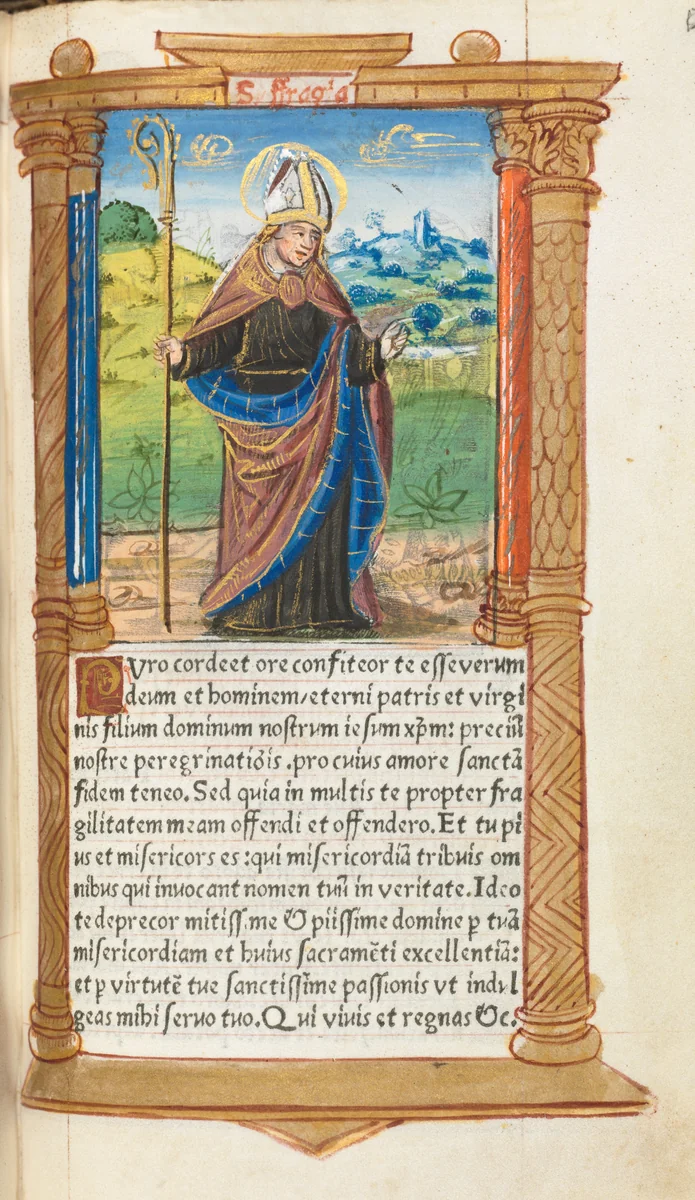 Suffragia
Puro corde et ore confiteor te esse verum
deum et hominem/eterni patris et virgi
nis filium dominum nostrum iesum xp̄m: preciū
nostre peregrinatiōis .pro cuius amore sanctā
fidem teneo. Sed quia in multis te propter fra
gilitatem meam offendi et offendero. Et tu pi
us et misericors es :qui misericordiā tribuis om
nibus qui inuocant nomen tuū in veritate. Ideo
te deprecor mitissime & piissime domine ꝑ tuā
misericordiam et huius sacramēti excellentiā:
et ꝑ virtutē tue sanctissime passionis vt indul
geas mihi seruo tuo. Qui viuis et regnas &c.